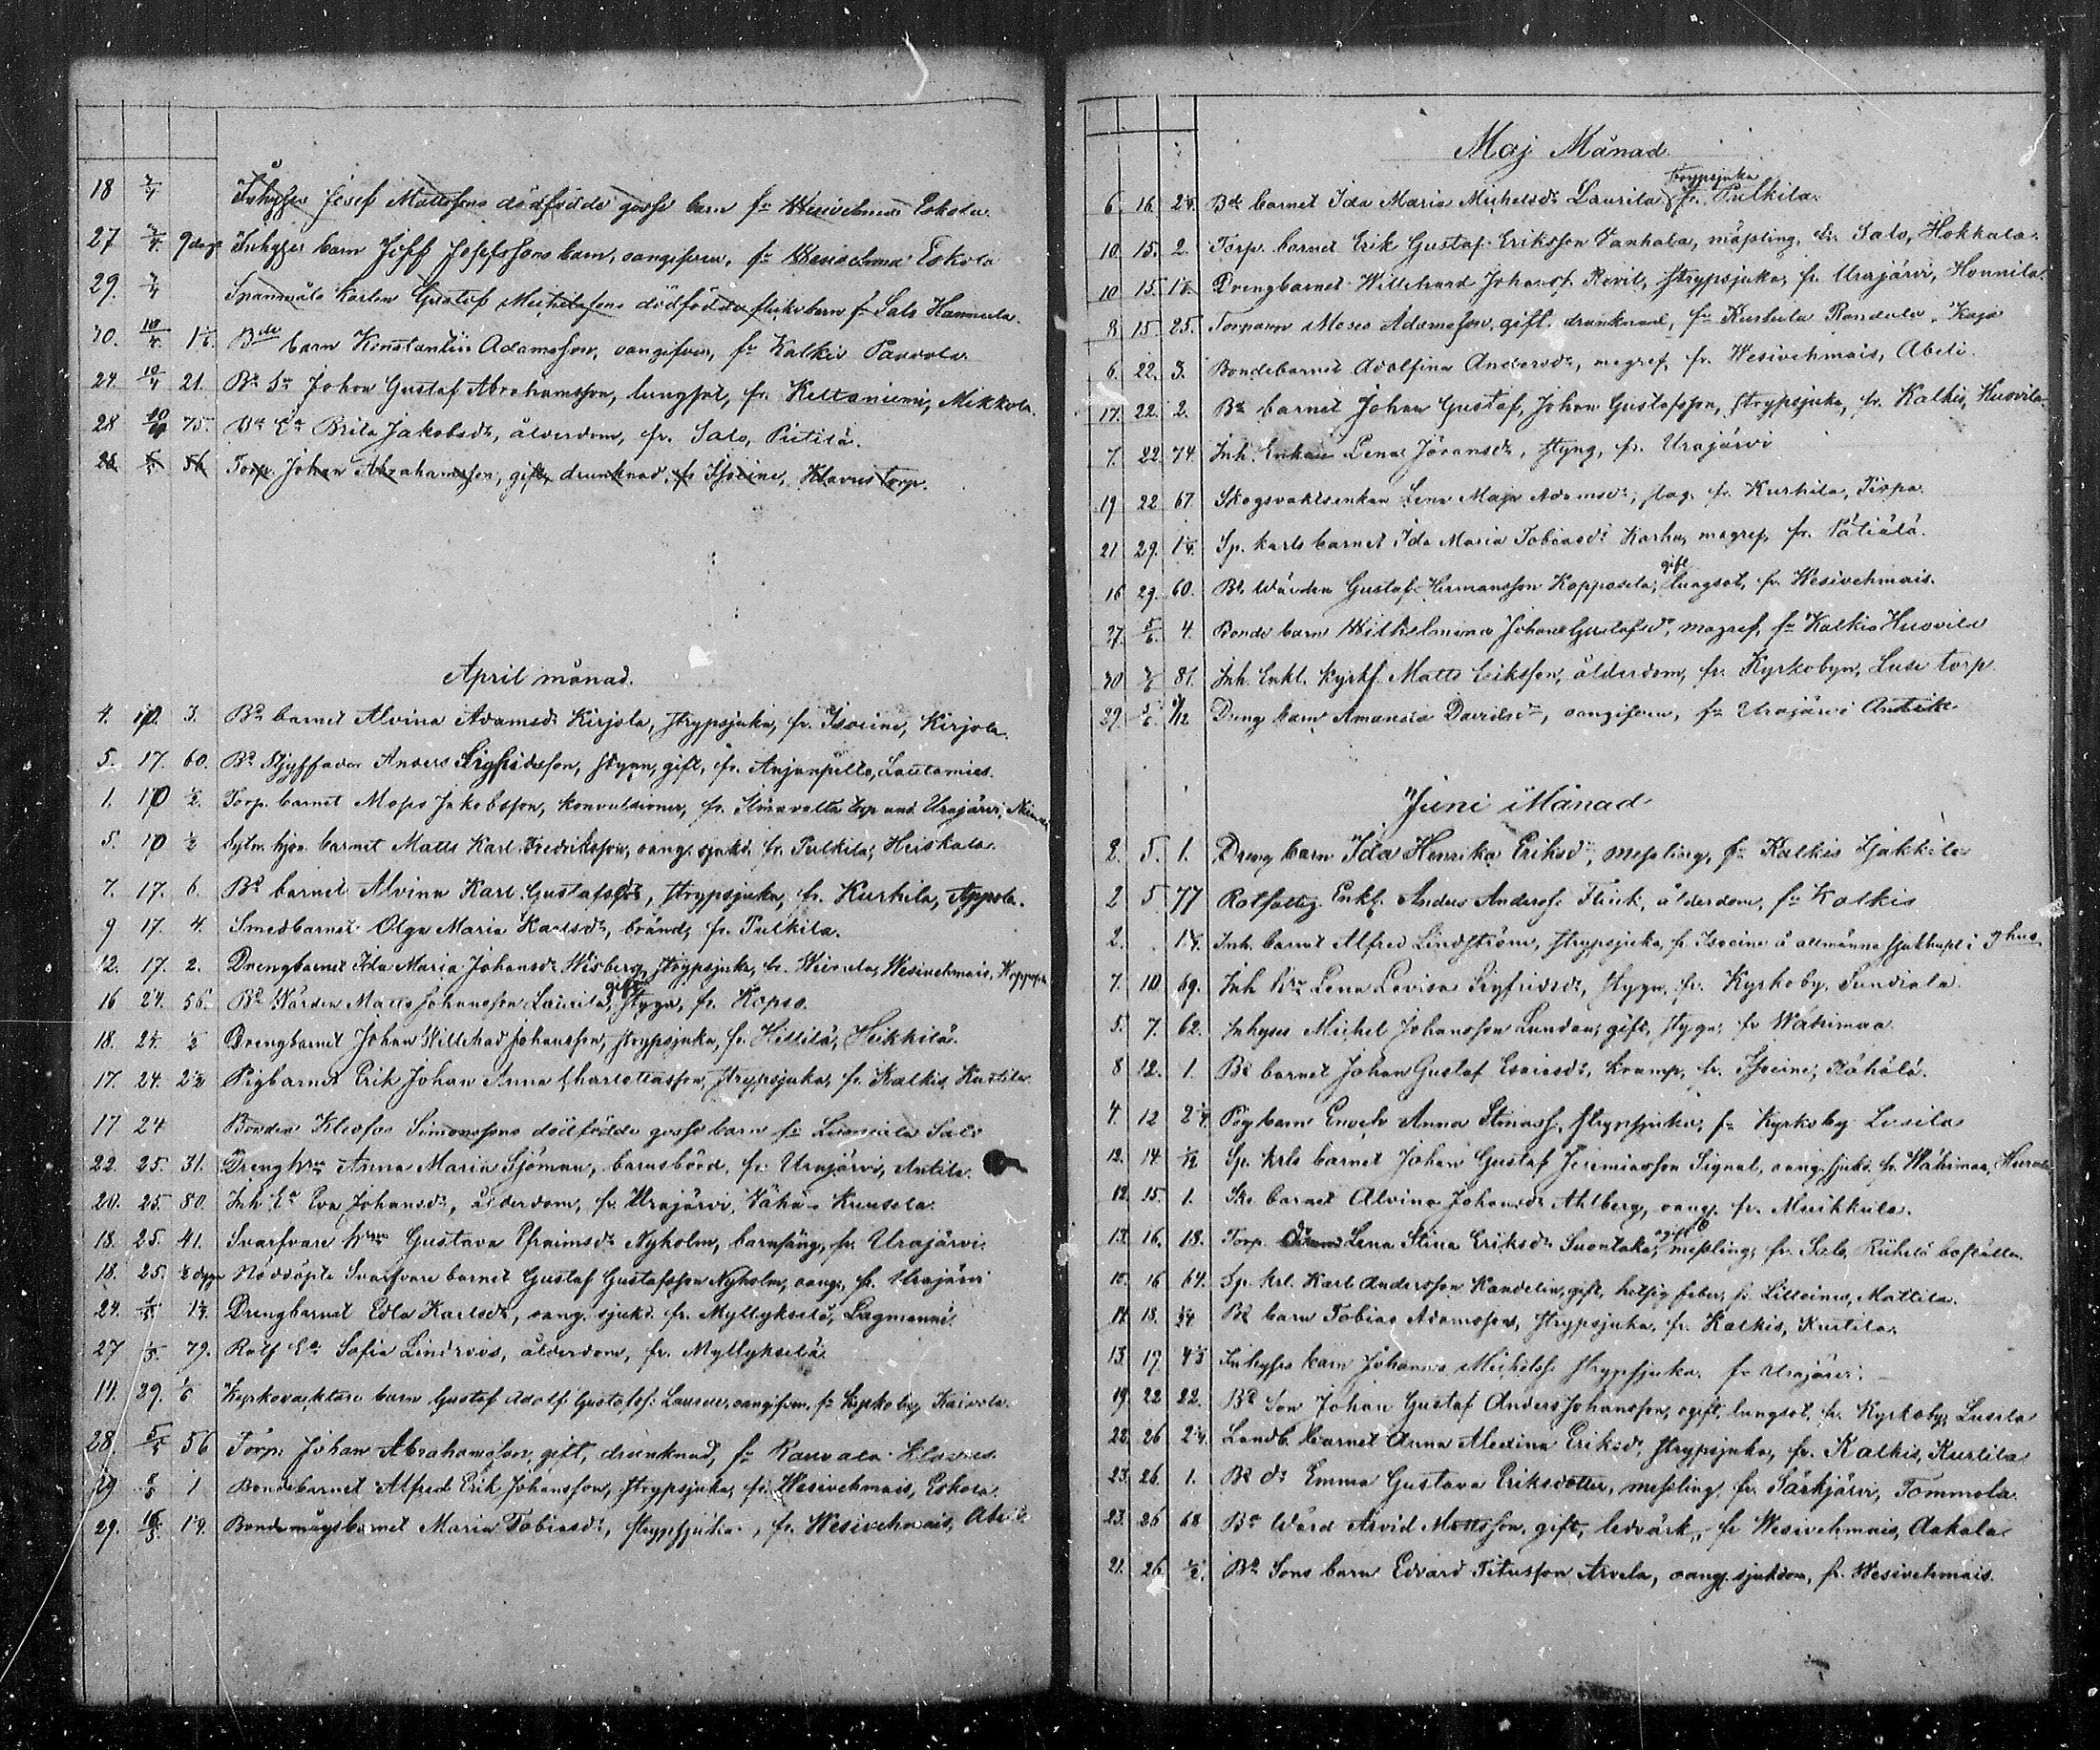 18 2/4 Inhyses Josef Mattssons dödfödde gosse barn fr Wesivehmais Eskola
27 2/4. 9 dag. Inhyses barn Josef Josefssons barn, oangifven, fr Wesivehmais Eskola
29. 2/4 Spannmåls karlen Gustaf Michelssons dödfödda flickebarn fr Salo Hannula.
30. 10/4. Bde barn Konstantin Adamsson, oangifven, fr Kalkis Paavola
24. 10/4 21. Bd Sn Johan Gustaf Abrahamsson, lungsot, fr. Keltaniemi, Mikkola.
28 75. Bd Ea Brita Jakobsdr, ålderdom, fr. Salo, Pietilä.
28 56 Torp. Johan Abrahamsson, gift, drunknad, fr Isoeine, Klavus torp.
April månad.
4. 10. 3. Bd barnet Alvina Adamsdr Kirjola, strypsjuka, fr. Isoeine, Kirjola.
5. 17. 60. Bd Styffader Anders Sigfridsson, styng, gift, fr. Anjanpelto, Lautamies.
1. 10 1/2. Torp. barnet Moses Jakobsson, konvulsioner, fr. torp und. Urajärvi,
5. 10 1/2 barnet Matts Karl Fredriksson, oang. sjukd. fr. Pulkila, Heiskala.
7. 17. 6. Bd barnet Alvina Karl Gustafsdr, strypsjuka, fr. Kurhila, Appola.
9 17. 4. Smedbarnet Olga Maria Karlsdr, bränd, fr. Pulkila.
12. 17. 2. Drengbarnet Ida Maria Johansdr Wisberg, strypsjuka, fr. Wesivehmais,
16 24. 56. Bd Wården Matts Johansson Laurila, gift, styng, fr. Kopso.
18. 24. 1/2 Drengbarnet Johan Willehad Johansson, strypsjuka, fr. Hillilä, Heikkilä.
17. 24. 2 1/2 Pigbarnet Erik Johan Anna Charlottasson, strypsjuka, fr. Kalkis, Kurtila.
17 24 Bonden Kleofas Simonssons dödfödde gosse barn fr Salo
22. 25. 31. Dreng hru Anna Maria Sjöman, barnsbörd, fr. Urajärvi, Antila.
20. 25. 80. Inh. Ea Eva Johansdr, ålderdom, fr. Urajärvi, Vähä-Kuusela.
18. 25. 41. Svarfvare hru Gustava Efraimsdr Nyholm, barnsäng, fr. Urajärvi.
18. 25. Nöddöpte Svarfvare barnet Gustaf Gustafsson Nyholm, oang., fr. Urajärvi
24. 1/5 1 1/4. Drengbarnet Edla Karlsdr, oang. sjukd. fr. Myllykselä, Lagmanni.
27 1/5. 79. Rotf Ea Sofia Lindroos, ålderdom, fr. Myllykselä
14. 29. 1/6 Kyrkovaktare barn Gustaf Adolf Gustafsf. Lauren, oangifven, fr Kyrkoby Kaivola
28. 5/5 56 Torp. Johan Abrahamsson, gift, drunknad, fr Rauvala Klavus
29 8/5 1 Bondebarnet Alfred Erik Johansson, strypsjuka, fr. Wesivehmais, Eskola.
29. 16/5. 1 1/4. Bondemågsbarnet Maria Tobiasdr, strypsjuka, fr. Wesivehmais, Abeli
Maj Månad.
6. 16. 2 1/4. Bde barnet Ida Maria Michelsdr Laurila, strypsjuka fr. Pulkila.
10. 15. 2. Torp. barnet Erik Gustaf Eriksson Vanhala, mässling, fr. Salo, Hokkala.
10 15. Drengbarnet Willehard Johansf. Revil, strypsjuka, fr. Urajärvi, Honnila.
8. 15 25. Torparen Moses Adamsson, gift, drunknad, fr Kurhila Kaja
6. 22. 3. Bondebarnet Adolfina Andersdr, magref, fr. Wesivehmais, Abeli.
17. 22. 2. Bd barnet Johan Gustaf, Johan Gustafsson, strypsjuka, fr. Kalkis, Huovila.
7. 22. 74. Inh. Enkan Lena Jöransdr, styng, fr. Urajärvi
19 22 67. Skogsvaktsenkan Lena Maja Adamsdr, slag, fr. Kurhila,
21 29. 1 1/4. Sp. karls barnet Ida Maria Tobiasdr Karhu, magref, fr. Pätiälä.
16 29. 60. Bd Wården Gustaf Hermansson Kopposela, gift lungsot, fr. Wesivehmais.
27. 5/6. 4. Bonde barn Wilhelmina Johan Gustafsdr, magref, fr Kalkis Huovila
30 81. Inh. Enkl. kyrkf. Matts Eriksson, ålderdom, fr. Kyrkobyn, Lusi torp
29. 9/12 Dreng barn Amanda Davidsdr, oangifven, fr Urajärvi Antila
Juni Månad
2. 5. 1. Dreng barn Ida Henrika Eriksdr, messling, fr Kalkis
2 5 77 Rotfattig Enkl. Anders Anderss. Flink, ålderdom, fr Kalkis
2. 1 1/4. Inh. barnet Alfred Lindström, strypsjuka, fr. Isoeine å allmänna
7. 10 69. Inh hru Lena Lovisa Sigfridsdr, styng, fr. Kyrkoby, Sundiala.
5. 7. 62. Inhyses Michel Johansson Lundan, gift, styng, fr Wähimaa
8 12. 1. Bd barnet Johan Gustaf Esaiasdr, kramp, fr. Isoeine, Rähälä.
4. 12 2 1/4 Pigbarn Enoch Anna Stinass., strypsjuka, fr Kyrkoby Lusila
12. 14 1/12 Sp. krls barnet Johan Gustaf Jeremiasson Signal, oang. sjukd. fr. Wähimaa,
12. 15. 1. Ske barnet Alvina Johansdr Ahlberg, oang. fr. Muikkula.
13. 16. 18. Torp. Lena Stina Eriksdr Suontaka, ogift messling, fr. Salo,
10. 16 64. Sp. krl. Karl Andersson Kandelin, gift, hetsig feber, fr. Mattila.
14 18. 1/24 Bd barn Tobias Adamsson, strypsjuka, fr. Kalkis, Kurtila.
13. 19. Inhyses barn Johannes Michelsf. strypsjuka, fr Urajärvi.
19. 22 22. Bd Son Johan Gustaf Anders Johansson, ogift, lungsot, fr. Kyrkoby, Lusila
22. 26 2 1/4. Landb. barnet Anna Aledina Eriksdr, strypsjuka, fr. Kalkis, Kurtila
23. 26. 1. Bd dr Emma Gustava Eriksdotter, messling, fr. Särkjärvi, Tommola.
23. 26 68 Bd Wård Arvid Mattsson, gift, ledvärk, fr Wesivehmais, Aakala
21. 26. 1/2. Bd Sons barn Edvard Titusson Arvela, oang. sjukdom, fr. Wesivehmais.